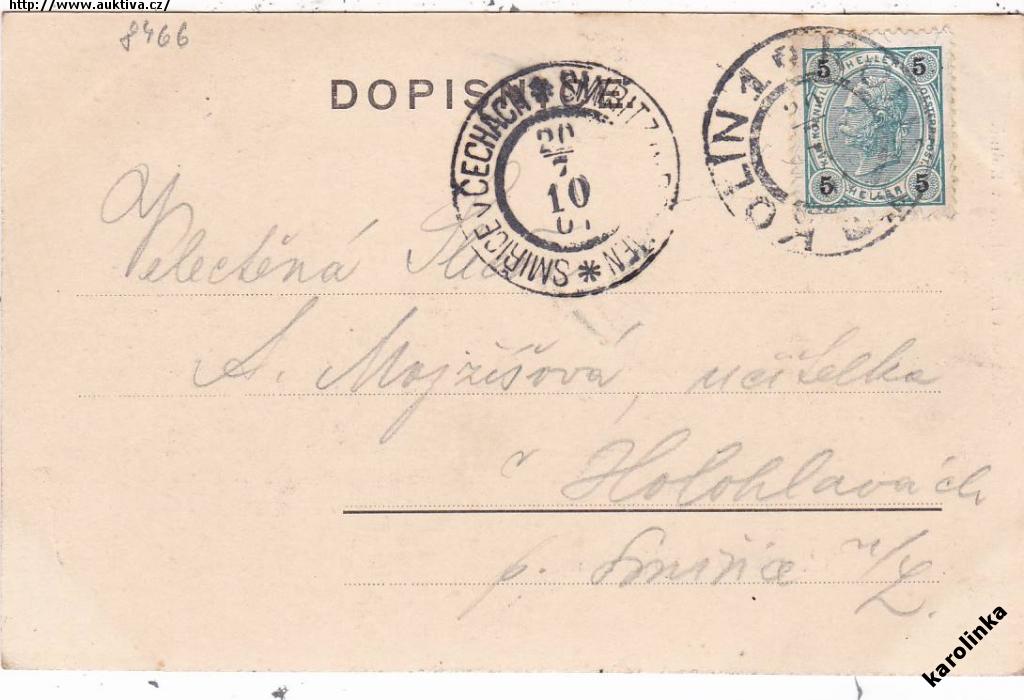 http://www.auktiva.cz/
8466
DOPISNI
5 HELLER 5
5 HELLER 5
KOLÍN 1
SMIŘICE V ČECHÁCH * SMIŘITZ
20
7
10
Velectěná
A. Mojžíšová, učitelka
v Holohlavách
p. Smiřice n/L.
karolinka